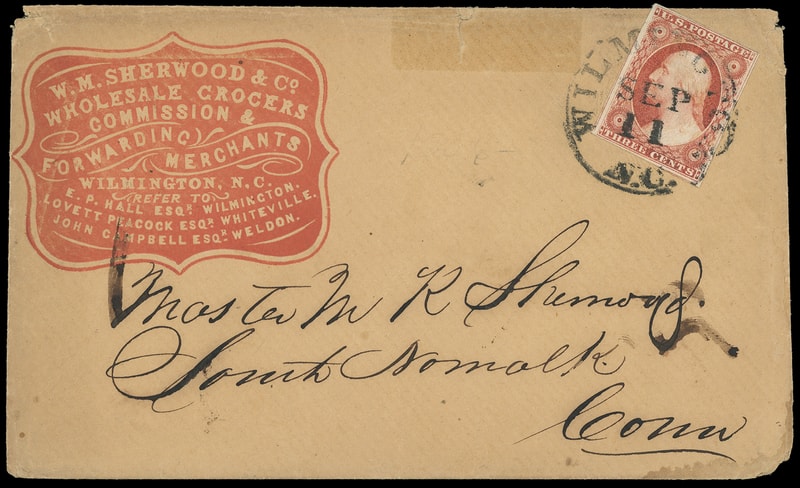 W.M. SHERWOOD & Co.
WHOLESALE GROCERS
COMMISSION &
FORWARDING MERCHANTS
WILMINGTON, N.C.
REFER TO
E. P. HALL ESQR. WILMINGTON.
LOVETT PEACOCK ESQR. WHITEVILLE.
JOHN CAMPBELL ESQR. WELDON.
U.S. POSTAGE
THREE CENTS
SEP
11
N.C.
Master M K Sherwood.
South Norwalk
Conn